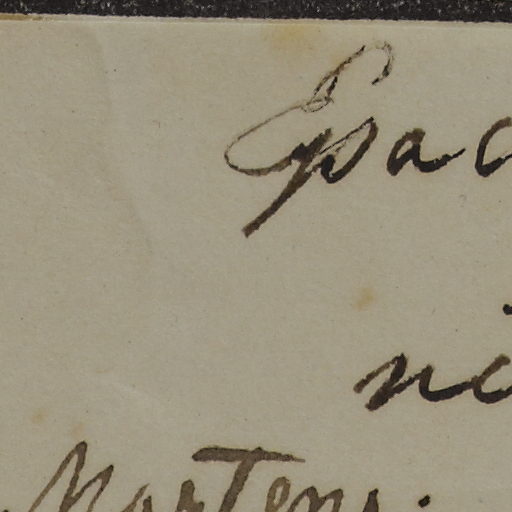 Epac
ni
Martens.